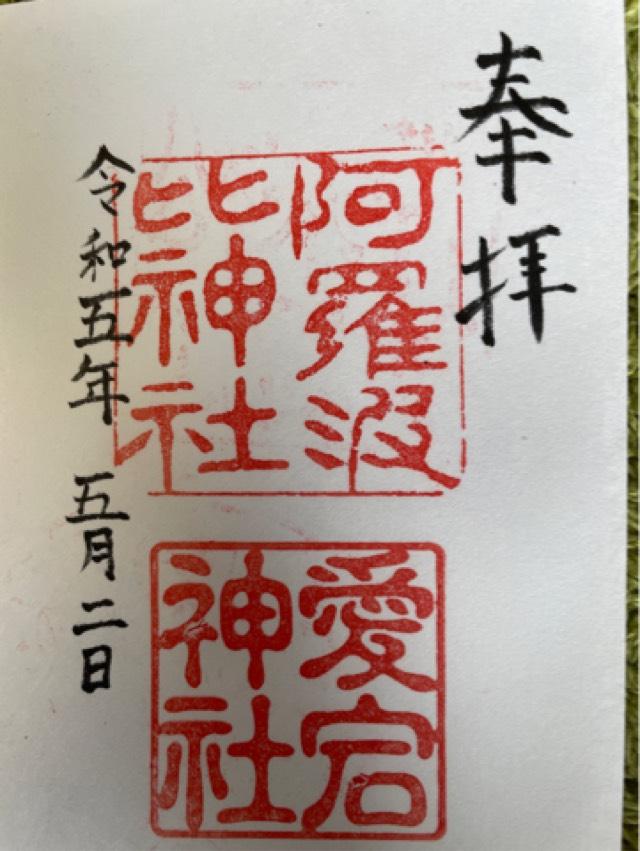 奉拝
阿羅波
比神社
愛宕
神社
令和五年 五月二日